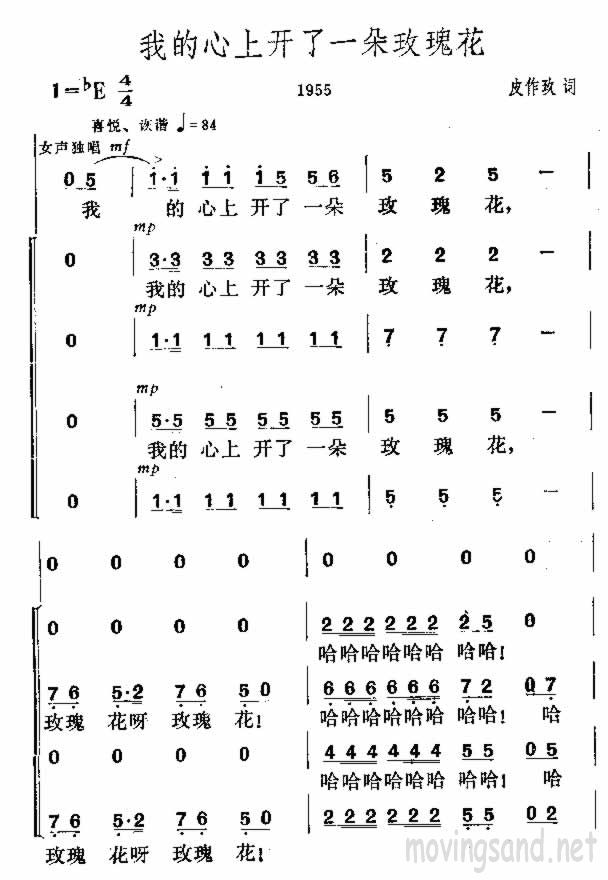 我的心上开了一朵玫瑰花
1=♭E 4/4
1955
皮作玖 词
喜悦、诙谐 ♩=84
女声独唱 mf
0 5 | 1·1 1 1 1 5 5 6 | 5 2 5 — |
我 的 心上 开了 一朵 玫 瑰 花,
mp
0 | 3·3 3 3 3 3 3 3 | 2 2 2 — |
我的 心上 开了 一朵 玫 瑰 花,
mp
0 | 1·1 1 1 1 1 1 1 | 7 7 7 — |
mp
0 | 5·5 5 5 5 5 5 5 | 5 5 5 — |
我的 心上 开了 一朵 玫 瑰 花,
mp
0 | 1·1 1 1 1 1 1 1 | 5 5 5 — |
0 0 0 0 | 0 0 0 0 |
0 0 0 0 | 2 2 2 2 2 2 2 5 0 |
哈哈哈哈哈哈 哈哈!
7 6 5·2 7 6 5 0 | 6 6 6 6 6 6 7 2 0 7 |
玫瑰 花呀 玫瑰 花! 哈哈哈哈哈哈 哈哈! 哈
0 0 0 0 | 4 4 4 4 4 4 5 5 0 5 |
哈哈哈哈哈哈 哈哈! 哈
7 6 5·2 7 6 5 0 | 2 2 2 2 2 2 5 5 0 2 |
玫瑰 花呀 玫瑰 花!
movingsand.net